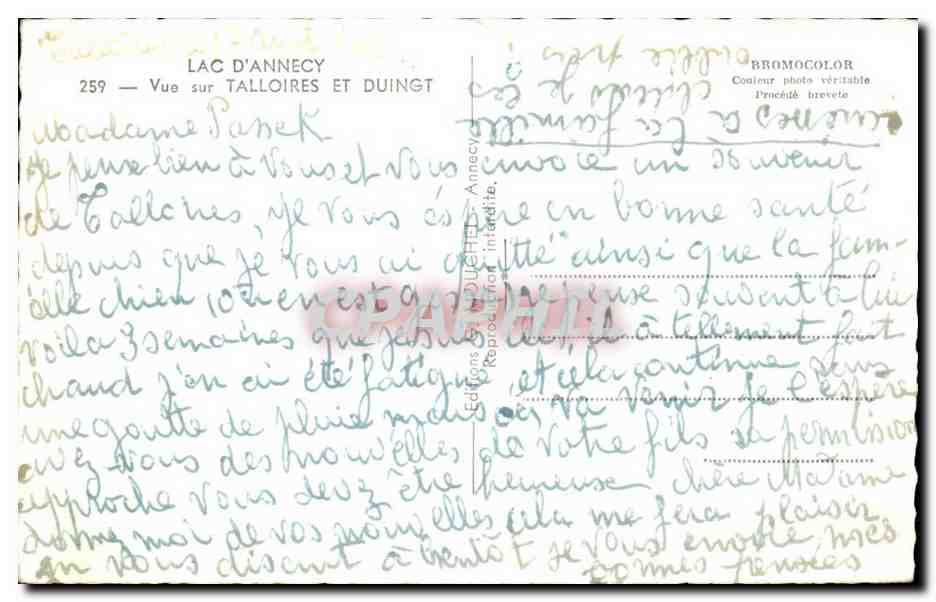 LAC D'ANNECY
259 — Vue sur TALLOIRES ET DUINGT
BROMOCOLOR
Couleur photo véritable
Procédé breveté
Editions G. Annecy
Reproduction interdite.
CPAPHIL
Madame Passek
Je pense bien à Vous et Vous envoie un souvenir
de Talloires, Je Vous éspère en bonne santé
depuis que je Vous ai quitté ainsi que la fam-
ille chien où en est je pense souvent à lui
Voila 3 semaines que je suis ici, il à tellement fait
chaud j'en ai été fatigué, et cela continue sans
une goutte de pluie mais ça va Venir je l'espère
avez Vous des nouvelles de Votre fils sa permission
approche Vous devez être heureuse chère Madame
donnez moi de Vos nouvelles cela me fera plaisir
en Vous disant à bientôt je Vous envoie mes
bonnes pensées
à la famille
je les
oublie pas